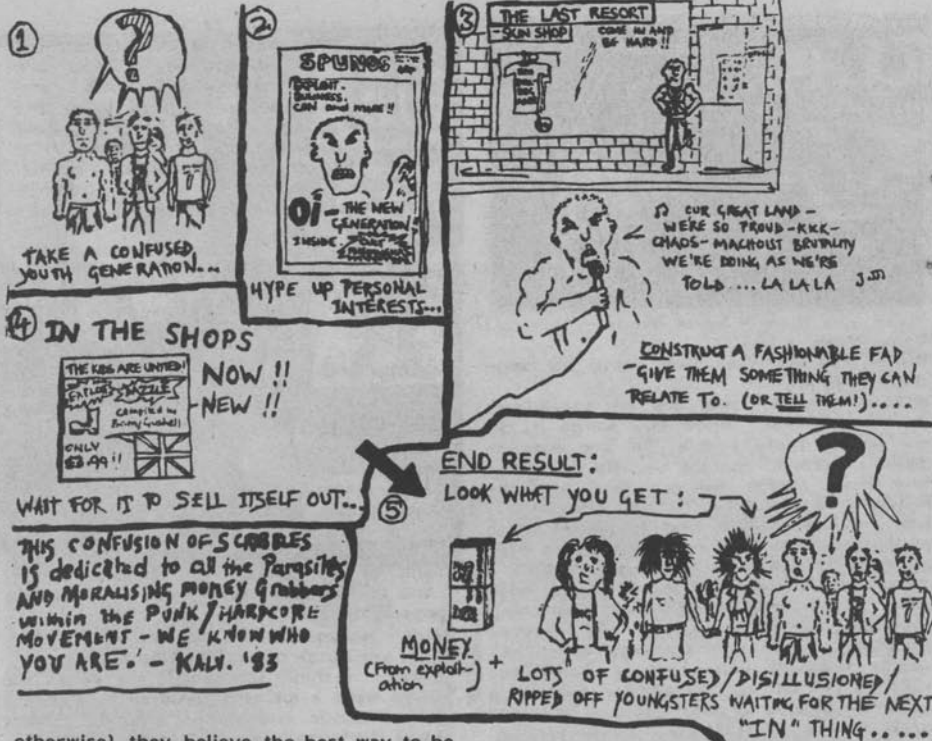 1
?
TAKE A CONFUSED
YOUTH GENERATION...
2
SPUNOS
EXPLOIT -
BUSINESS -
CAN and more!!
Oi - THE NEW
GENERATION
INSIDE:
HYPE UP PERSONAL
INTERESTS...
3
THE LAST RESORT
- SKIN SHOP
COME IN AND
BE HARD!!
OUR GREAT LAND -
WE'RE SO PROUD - KKK -
CHAOS - MACHOIST BRUTALITY
WE'RE DOING AS WE'RE
TOLD ... LA LA LA
CONSTRUCT A FASHIONABLE FAD
- GIVE THEM SOMETHING THEY CAN
RELATE TO. (OR TELL THEM!)....
4 IN THE SHOPS
THE KIDS ARE UNITED!
RAZZLE
Compiled by
ONLY
£3.99!!
NOW!!
- NEW!!
WAIT FOR IT TO SELL ITSELF OUT...
THIS CONFUSION OF SCRIBBLES
IS dedicated to all the Parasites
AND MORALISING MONEY Grabbers
within the PUNK / HARDCORE
MOVEMENT - WE KNOW WHO
YOU ARE.' - KALV. '83
5
END RESULT:
LOOK WHAT YOU GET:
?
MONEY
(From exploit-
ation
+
LOTS OF CONFUSED / DISILLUSIONED /
RIPPED OFF YOUNGSTERS WAITING FOR THE NEXT
"IN" THING.....
otherwise), they believe the best way to be